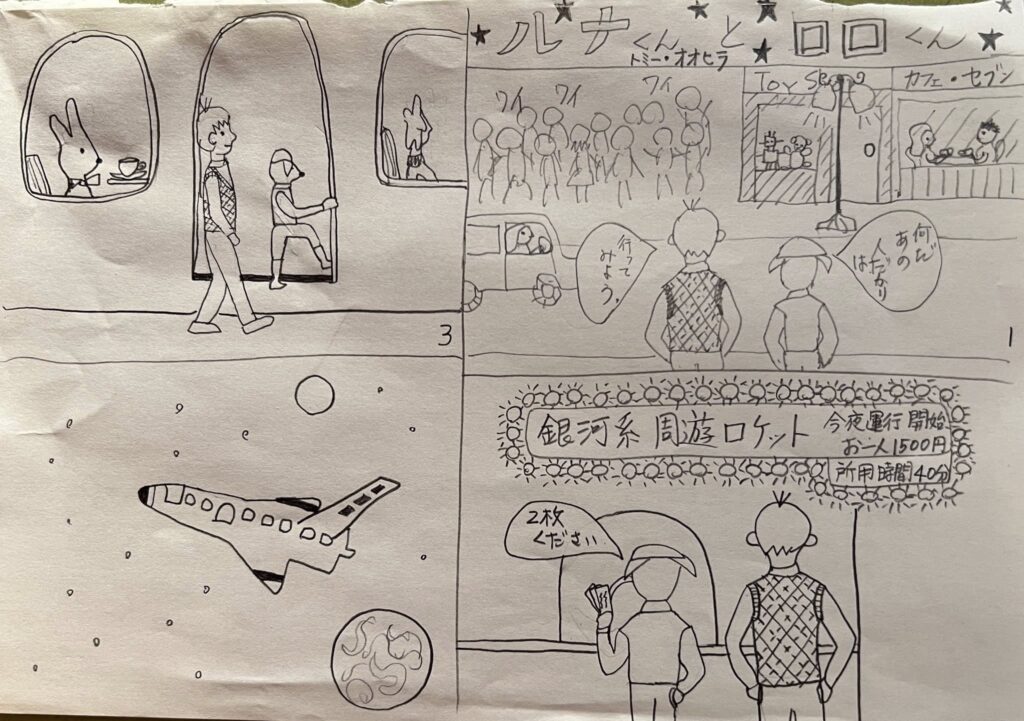 ルナくんとロロくん
トミー・オオヒラ
ワイ
ワイ
ワイ
Toy
カフェ・セブン
何だ
あの
人だかり
は
行って
みよう。
1
銀河系 周遊ロケット
今夜運行開始
お一人1500円
所用時間40分
2枚
ください
3